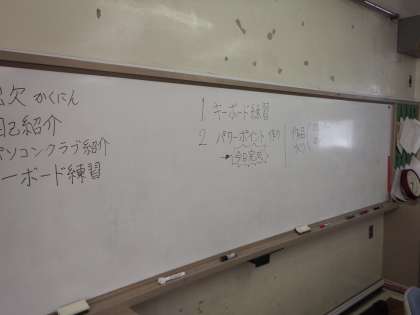 出欠 かくにん
自己紹介
パソコンクラブ紹介
キーボード練習
1 キーボード練習
2 パワーポイント作り
→今日完成
作品